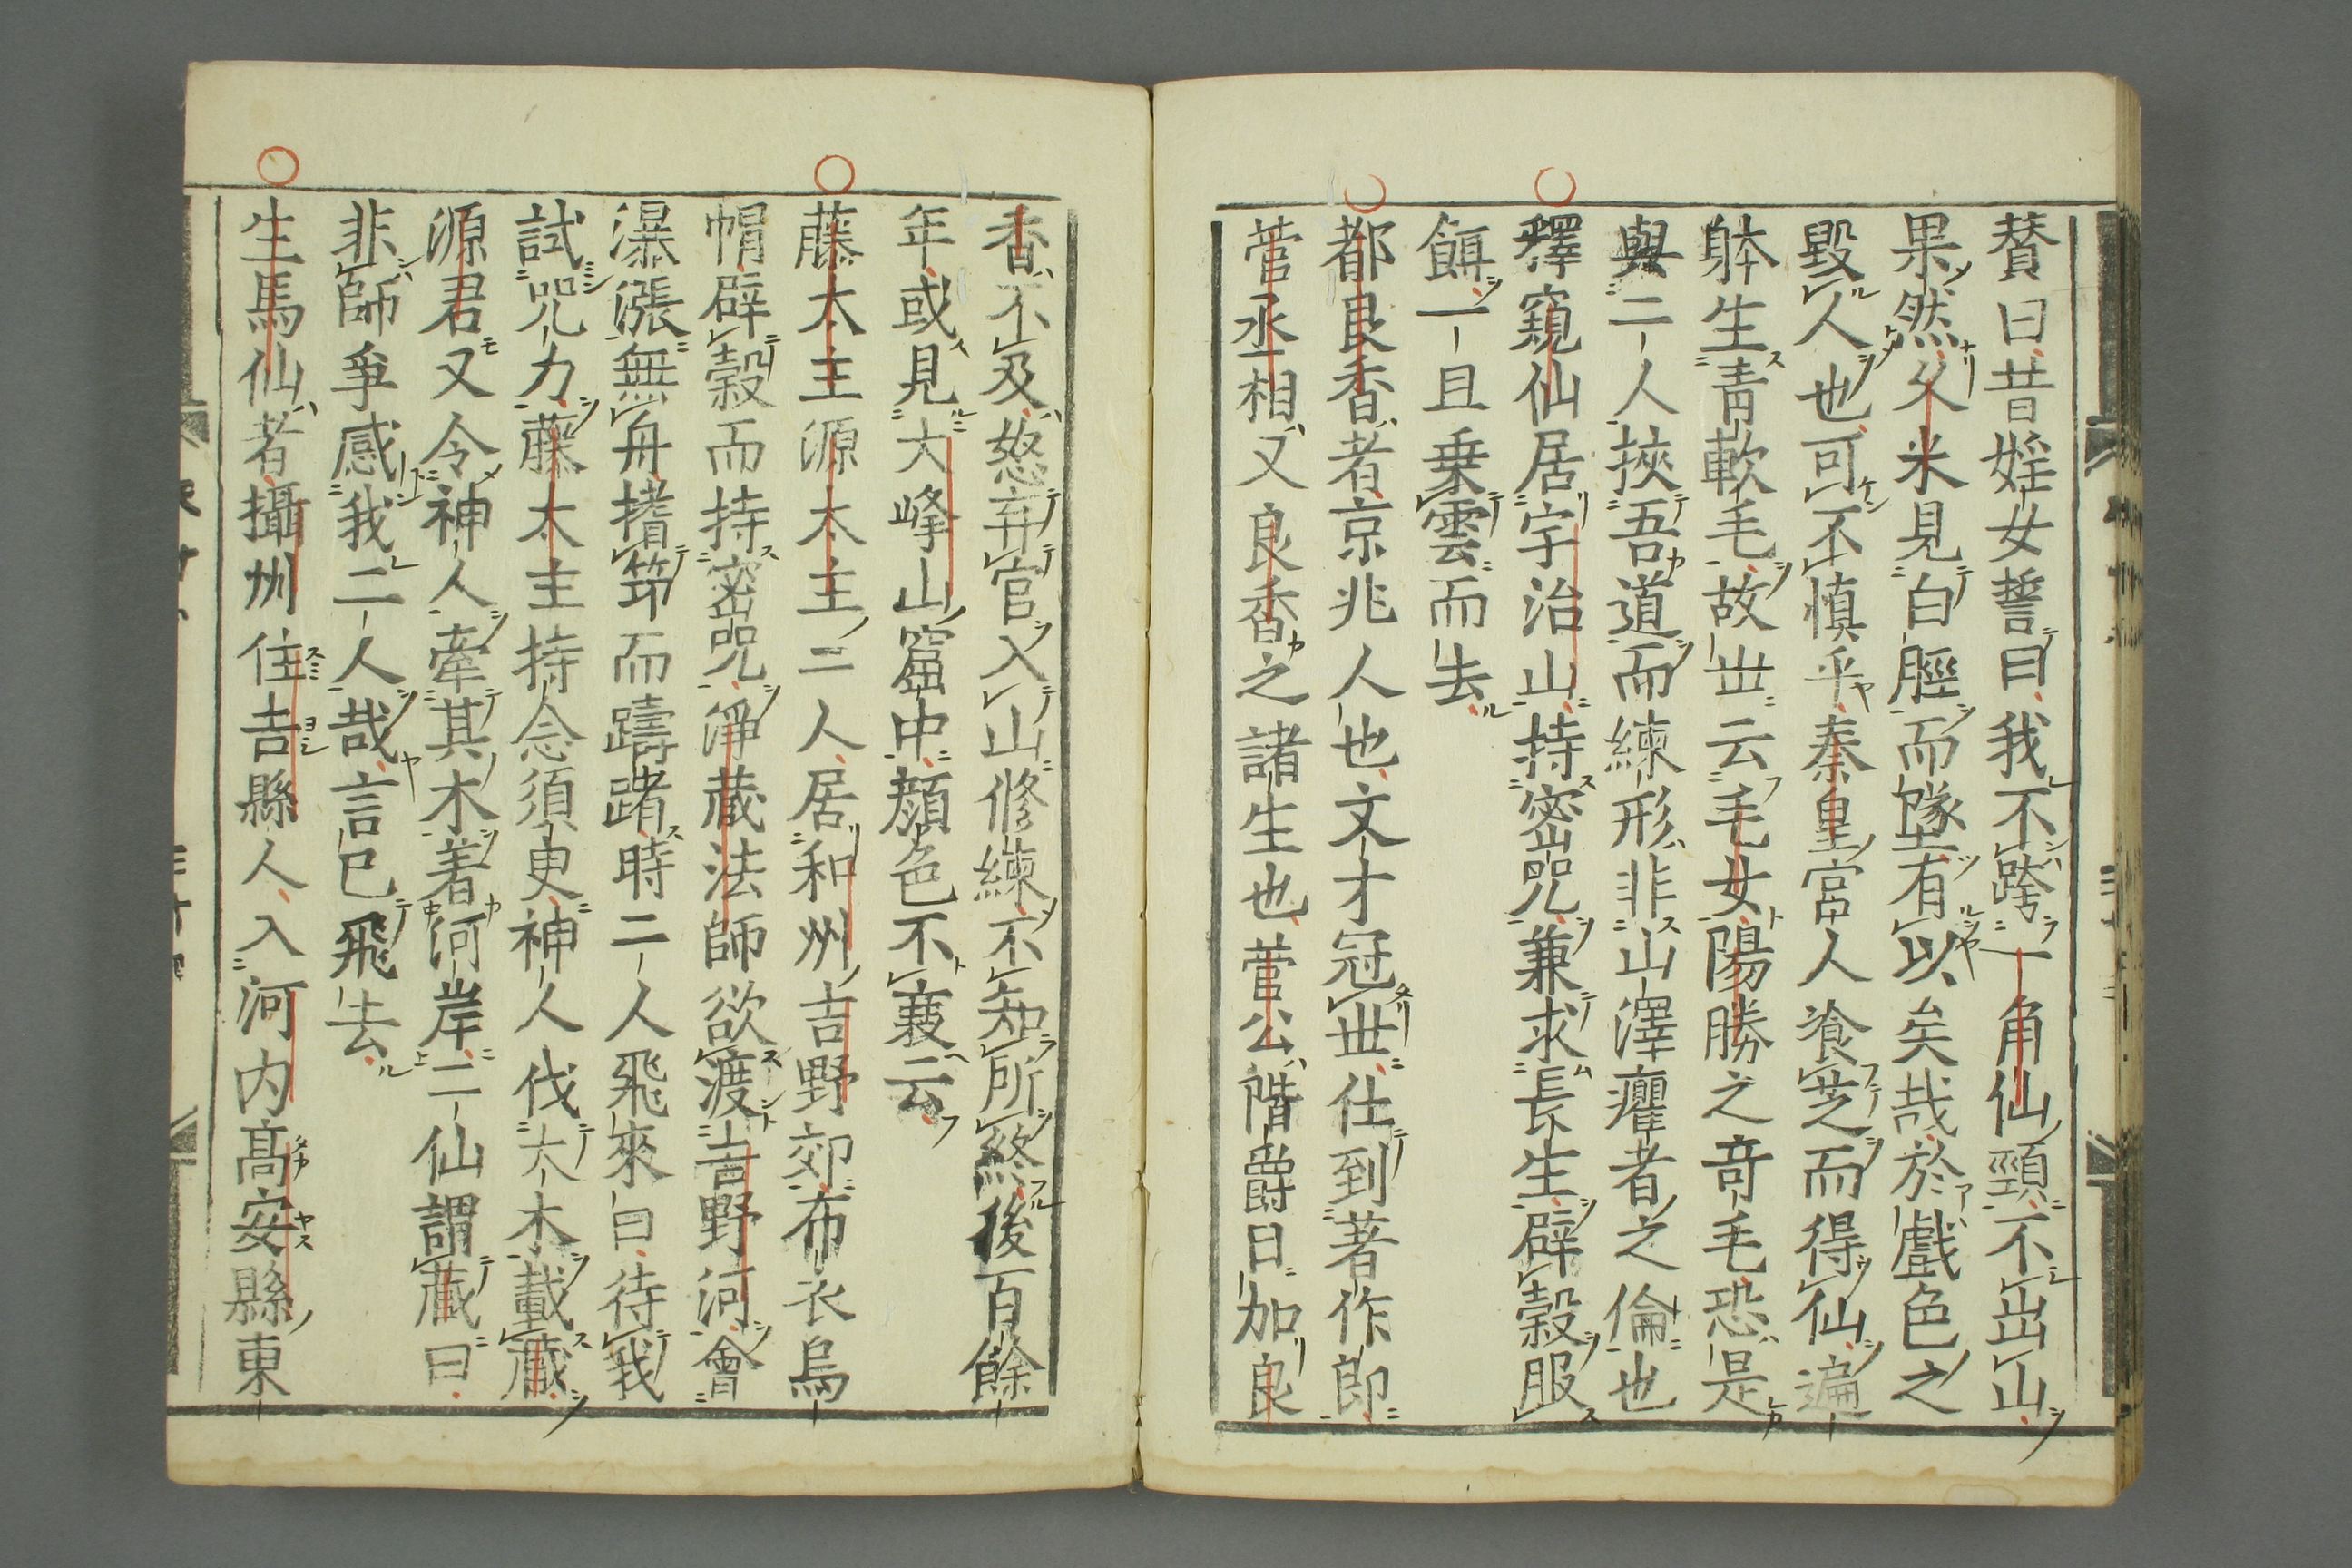 賛曰昔婬女誓曰我不跨一角仙頸不出山
果然久米見白脛而墜有以矣哉於戲色之
毀人也可不愼乎秦皇宮人飡芝而得仙遍
躰生青軟毛故丗云毛女陽勝之竒毛恐是
與二人挾吾道而練形非山澤癯者之倫也
釋窺仙居宇治山持密咒兼求長生辟穀服
餌一且乗雲而去
都良香者京兆人也文才冠丗仕到著作郎
菅丞相又良香之諸生也菅公階爵日加良
香不及怒弃官入山修練不知所終後百餘
年或見大峰山窟中顔色不衰云
藤太主源太主二人居和州吉野郊布衣烏
帽辟穀而持密咒淨藏法師欲渡吉野河會
瀑漲無舟揩笻而躊躇時二人飛來曰待我
試咒力藤太主持念須臾神人伐大木載藏
源君又令神人牽其木着河岸二仙謂藏曰
非師爭感我二人哉言已飛去
生馬仙者攝州住吉縣人入河内髙安縣東